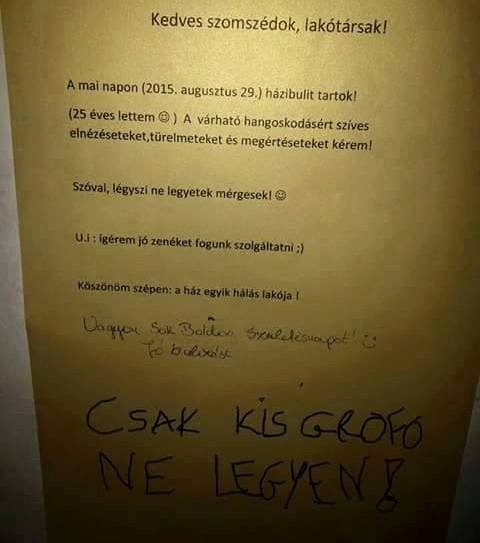 Kedves szomszédok, lakótársak!
A mai napon (2015. augusztus 29.) házibulit tartok!
(25 éves lettem ☺ ) A várható hangoskodásért szíves
elnézéseteket,türelmeteket és megértéseteket kérem!
Szóval, légyszi ne legyetek mérgesek! ☺
U.i : igérem jó zenéket fogunk szolgáltatni ;)
Köszönöm szépen: a ház egyik hálás lakója !
Nagyon Sok Boldog Születésnapot! :)
Jó bulizást
CSAK KIS GROFO
NE LEGYEN!